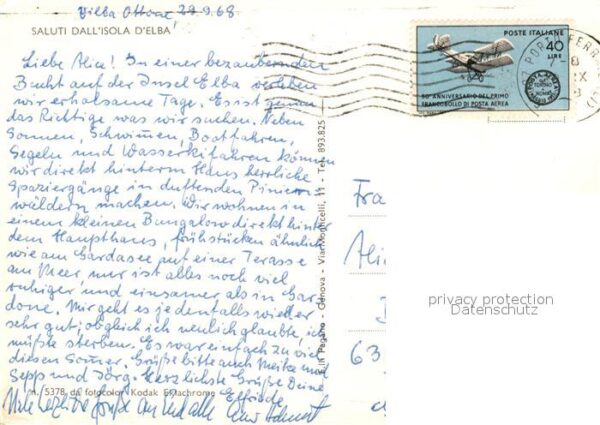 Villa Ottone, 29.9.68
SALUTI DALL'ISOLA D'ELBA
Liebe Alice! In einer bezaubernden
Bucht auf der Insel Elba verleben
wir erholsame Tage. Es ist genau
das Richtige was wir suchen. Neben
Sonnen, Schwimmen, Bootfahren,
Segeln und Wasserkifahren können
wir direkt hinterm Haus herrliche
Spaziergänge in duftenden Pinien
wäldern machen. Wir wohnen in
einem kleinen Bungalow direkt hinter
dem Haupthaus, frühstücken ähnlich
wie am Gardasee auf einer Terasse
am Meer nur ist alles noch viel
ruhiger und einsamer als in Gar
done. Mir geht es jedenfalls wieder
sehr gut, obgleich ich neulich glaubte, ich
müßte sterben. Es war einfach zu viel
diesen Sommer. Grüße bitte auch Meike und
Sepp und Jörg. Herzlichste Grüße Deine
Elfriede
n. 5378 da fotocolor Kodak Ektachrome
Viele herzliche Grüße an Euch alle
Pagano - Genova - Via Monticelli, 11 - Tel. 893.825
POSTE ITALIANE
40
LIRE
POSTA AEREA
TORINO
ROMA
50° ANNIVERSARIO DEL PRIMO
FRANCOBOLLO DI POSTA AEREA
Fra
Ali
63
privacy protection
Datenschutz